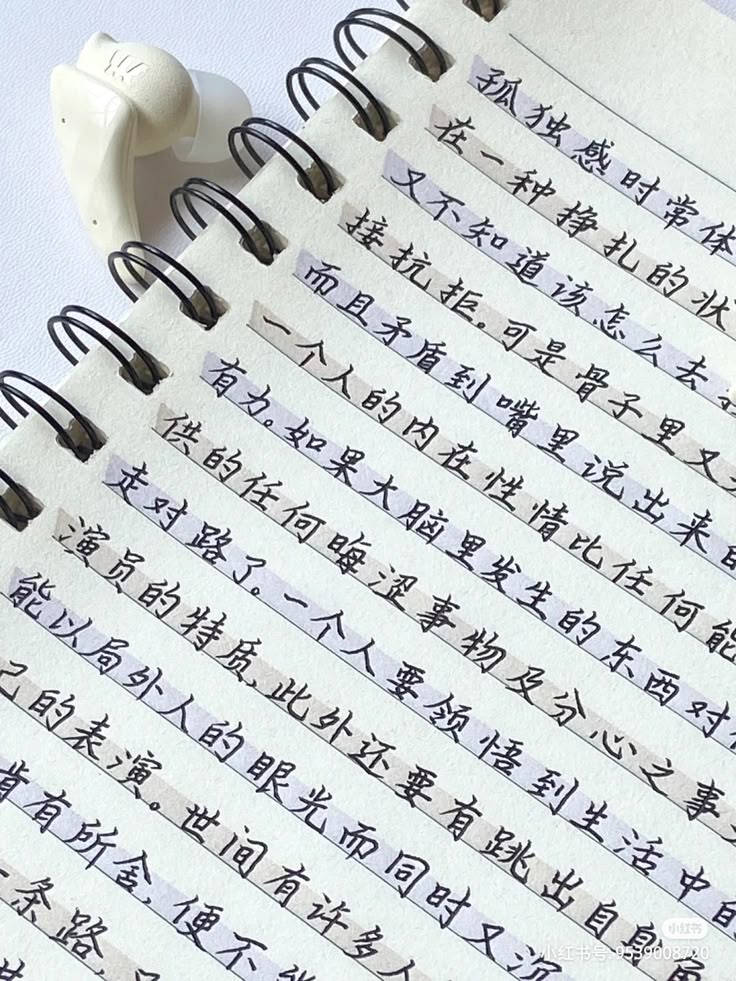 孤独感时常体
在一种挣扎的状
又不知道该怎么去
接抗拒。可是骨子里又
而且矛盾到嘴里说出来的
一个人的内在性情比任何能
有力。如果大脑里发生的东西对
供的任何晦涩事物及分心之事
走对路了。一个人要领悟到生活中的
演员的特质,此外还要有跳出自身角
能以局外人的眼光而同时又沉
己的表演。世间有许多人
肯有所舍,便不能
一条路,
小红书
小红书号: 9539008720